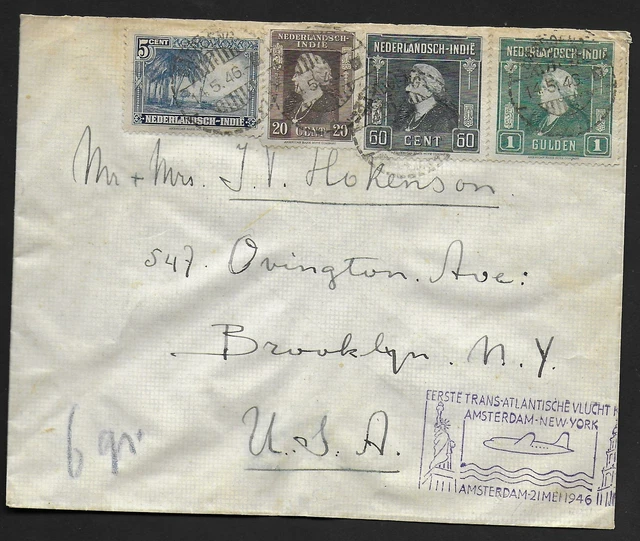 5 CENT
NEDERLANDSCH-INDIË
NEDERLANDSCH-INDIË
20 CENT 20
NEDERLANDSCH-INDIË
60 CENT 60
NEDERLANDSCH-INDIË
1 GULDEN 1
5.46
5.46
Mr + Mrs. J.V. Hokenson
547. Ovington. Ave:
Brooklyn. N.Y.
U.S.A.
6 gr.
EERSTE TRANS-ATLANTISCHE VLUCHT
AMSTERDAM-NEW-YORK
AMSTERDAM-21 MEI 1946